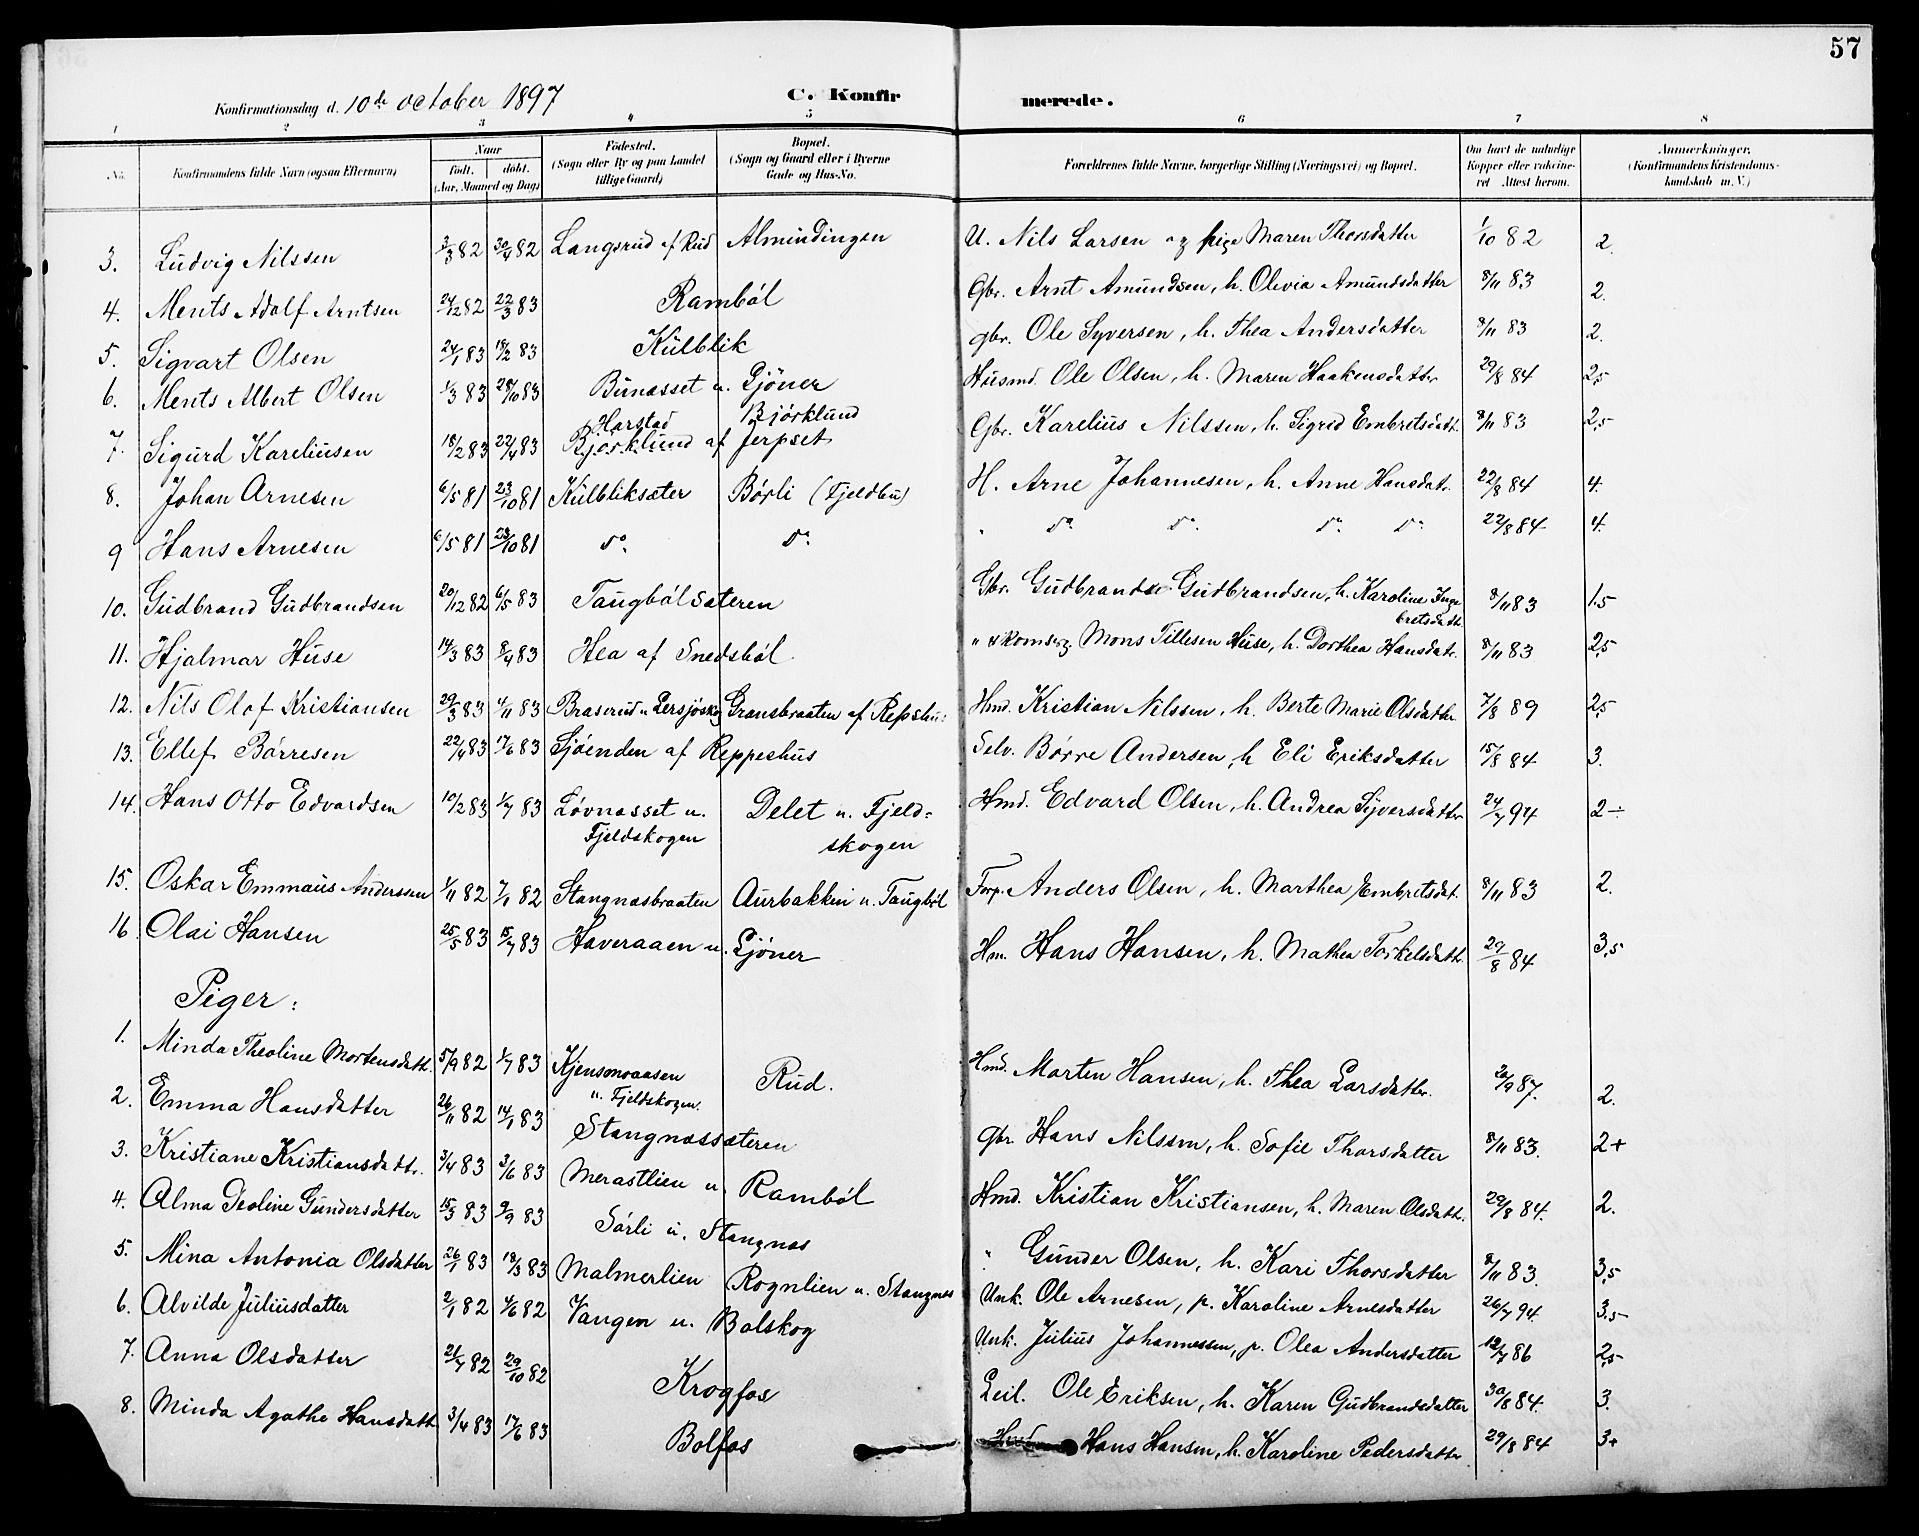 57
Konfirmationsdag d. 10de October 1897 C. Konfirmerede.
1 2 3 4 5 6 7 8
No. Konfirmandens fulde Navn (ogsaa Efternavn) Naar født. døbt. (Aar, Maaned og Dag) Födested. (Sogn eller By og paa Landet tillige Gaard) Bopæl. (Sogn og Gaard eller i Byerne Gade og Hus-No. Forældrenes fulde Navne, borgerlige Stilling (Næringsvei) og Bopæl. Om havt de naturlige Kopper eller vaccineret Attest herom. Anmærkninger. (Konfirmandens Kristendomskundskab m. V.)
3. Ludvig Nilssen 3/3 82 30/4 82 Langsrud af Rud Almindingen U. Nils Larsen og pige Maren Thorsdatter 1/10 82 2.
4. Ments Adolf Arntsen 24/12 82 22/3 83 Rambøl Gbr. Arnt Amundsen, h. Olivia Amundsdatter 8/11 83 2.
5. Sigvart Olsen 24/1 83 18/2 83 Kulblik gbr. Ole Syversen, h. Thea Andersdatter 8/11 83 2.
6. Ments Albert Olsen 1/3 83 28/10 83 Bunasset u. Gjöner Husmd. Ole Olsen, h. Maren Haakensdatter 29/8 84 2,5
7. Sigurd Kareliusen 18/2 83 22/4 83 Harstad Björklund Bjørklund af Jerpset Gbr. Karelius Nilssen, h. Sigrid Embretsdatt. 8/11 83 2,5
8. Johan Arnesen 6/5 81 23/10 81 Kulbliksæter Børli (Fjeldbu) H. Arne Johannesen, h. Anne Hansdatr. 22/8 84 4.
9 Hans Arnesen 6/5 81 23/10 81 do. do. " do. do. do. do. 22/8 84 4.
10. Gudbrand Gudbrandsen 20/12 82 6/5 83 Taugbølsæteren Gbr. Gudbrand Gudbrandsen, h. Karoline Inge
bretsdatt. 8/11 83 1.5
11. Hjalmar Huse 14/3 83 8/4 83 Hea af Snedsbøl. Mons Tillesen Huse, h. Dorthea Hansdatr. 8/11 83 2,5
12. Nils Olaf Kristiansen 29/3 83 4/11 83 Braserud u. Persjøskog Gransbraaten af Repshus Hmd. Kristian Nilssen, h. Berte Marie Olsdatter 7/8 89 2,5
13. Ellef Børresen 22/4 83 17/6 83 Sjøenden af Reppeshus Selv. Børre Andersen, h Eli Eriksdatter 15/8 84 3.
14. Hans Otto Edvardsen 10/2 83 1/7 83 Løvnasset u. Delet u. Fjeld= Hmd. Edvard Olsen, h. Andrea Syversdatter 24/7 94 2÷
Fjeldskogen skogen
15. Oskar Emmaus Anderssen 1/11 82 7/1 82 Stangnæsbraaten Aurbakken u. Taugbøl Torp. Anders Olsen, h. Marthea Embretsdat. 8/11 83 2.
16. Olai Hansen 25/5 83 15/7 83 Haveraaen u. Gjöner Hm. Hans Hansen, h. Mathea Torkelsdatt. 29/8 84 3,5
Piger:
1. Minda Theoline Mortensdatt. 5/9 82 1/7 83 Kjensmoaasen Rud. Hmd. Morten Hansen, h. Thea Larsdatter. 20/9 87. 2.
u. Fjeldskogen.
2. Emma Hansdatter 26/11 82 14/1 83 Stangnæssæteren gbr Hans Nilssen, h. Sofie Thorsdatter 8/11 83. 2+
3. Kristiane Kristiansdattr. 3/4 83 3/6 83 Merastlien u. Rambøl Hmd. Kristian Kristiansen, h. Maren Olsdatt. 29/8 84. 2.
4. Alma Teoline Gundersdatter 15/3 83 9/9 83 Sørli u. Stangnæs " Gunder Olsen, h. Kari Thorsdatter 8/11 83. 3,5
5. Mina Antonia Olsdatter 26/1 83 18/3 83 Malmerlien Rognlien u. Stangnes Unk. Ole Arnesen, p. Karoline Arnesdatter 26/7 94. 3.5
6. Alvilde Juliusdatter 2/1 82 4/6 82 Vangen u. Bolskog Unk. Julius Johannessen, p. Olea Andersdatter 12/7 86 2,5
7. Anna Olsdatter 21/7 82 29/10 82 Krogfos Leil. Ole Eriksen, h. Karen Gudbrandsdatter 30/8 84. 3.
8. Minda Agathe Hansdatt. 3/4 83 17/6 83 Bolfos Hans Hansen, h. Karoline Pedersdatter 29/8 84 3+